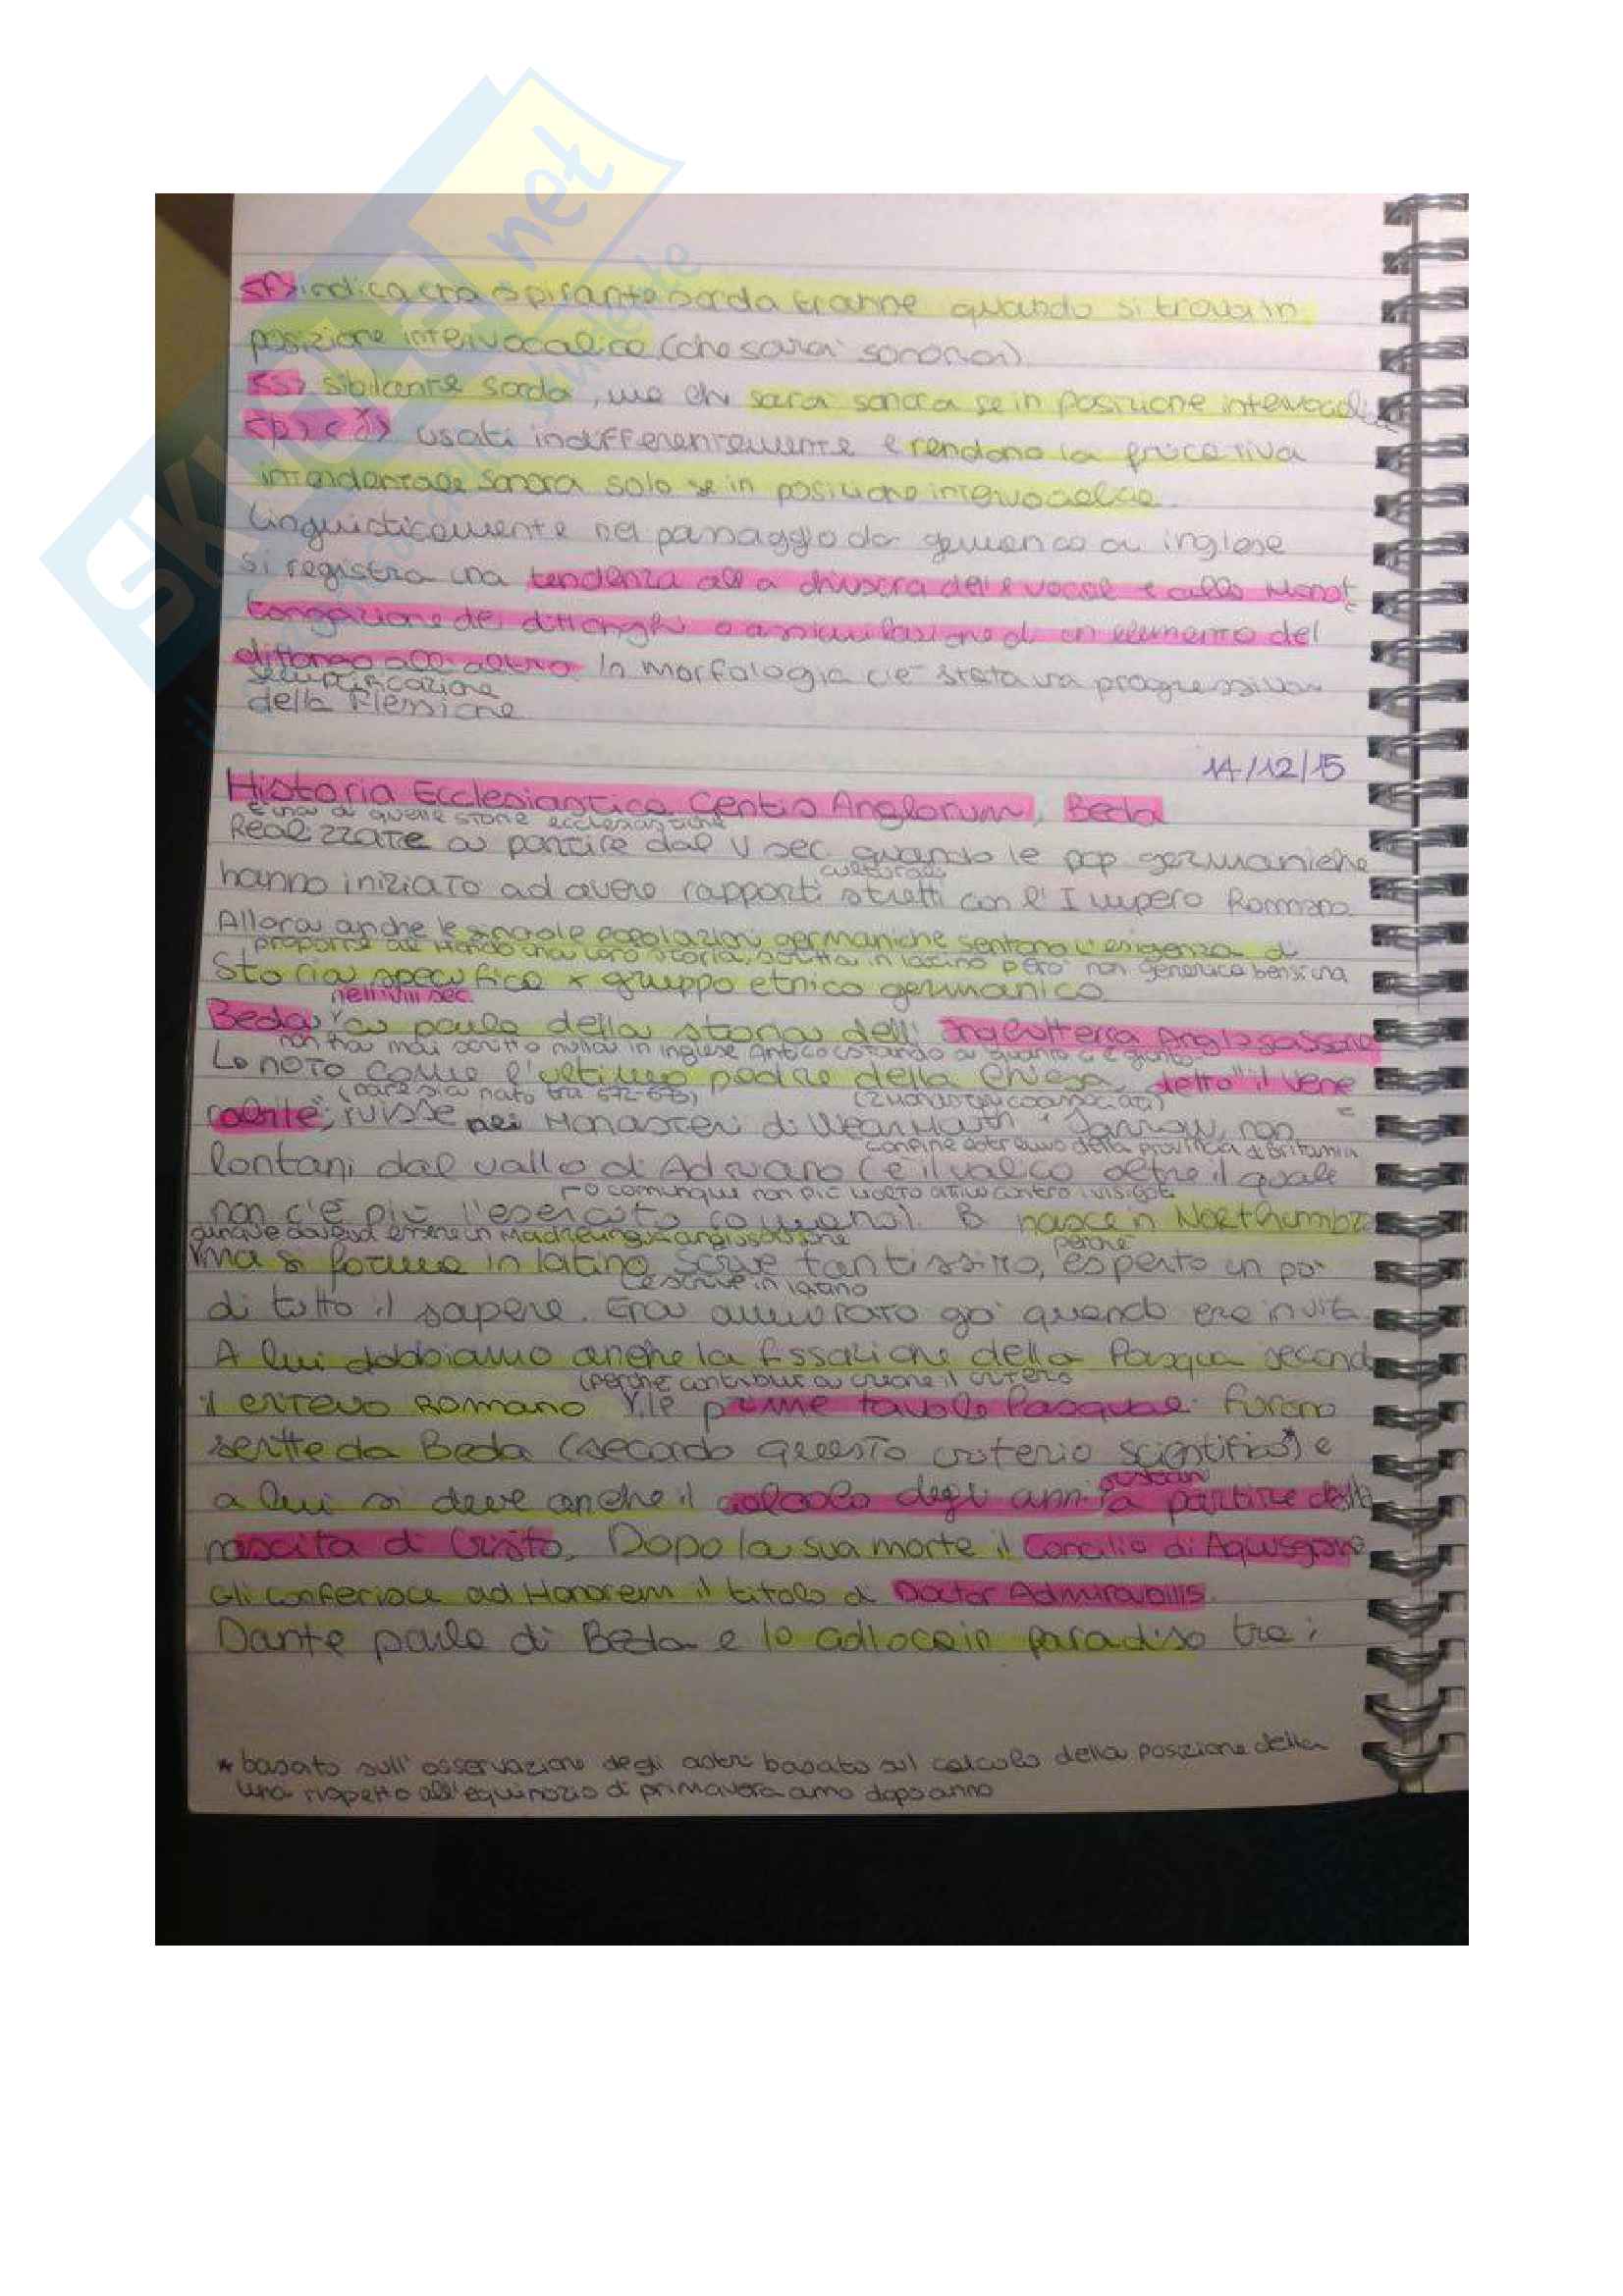 SKUOLA.net
<f> indica una spirante sorda tranne quando si trova in
posizione intervocalica (che sarà sonora)
<s> sibilante sorda, sarà sonora se in posizione intervocalica
<þ> <ð> usati indifferentemente e rendono la fricativa
interdentale sonora solo se in posizione intervocalica.
Linguisticamente nel passaggio da germanico a inglese
si registra una tendenza alla chiusura delle vocali e alla Monot
tongazione dei dittonghi o assimilazione di un elemento del
dittongo all'altro. In morfologia c'è stata una progressiva
semplificazione
della flessione
14/12/15
Historia Ecclesiastica Gentis Anglorum, Beda
È una di quelle storie ecclesiastiche
Realizzate a partire dal V sec quando le pop germaniche
culturali
hanno iniziato ad avere rapporti stretti con l'Impero Romano
Allora anche le singole popolazioni germaniche sentono l'esigenza di
proporre al Mondo una loro storia, scritta in latino però non generica bensì una
Storia specifica x gruppo etnico germanico
nell'VIII sec.
Beda ci parla della storia dell'Inghilterra Anglosassone
non ha mai scritto nulla in inglese antico stando a quanto ci è giunto
Lo noto come l'ultimo padre della Chiesa, detto "il Vene
(pare sia nato tra 672-673) (2 monasteri coassociati)
rabile", visse nei Monasteri di Wearmouth Jarrow, non
confine estremo della provincia di Britannia
lontani dal vallo di Adriano (è il valico oltre il quale
o comunque non più molto attivo contro i visigoti
non c'è più l'esercito romano). B nasce in Northumbria
dunque doveva essere in Madrelingua anglosassone perchè
Ma si forma in latino scrive tantissimo, esperto un po'
e scrive in latino
di tutto il sapere. Era ammirato già quando era in vita
A lui dobbiamo anche la fissazione della Pasqua second
(perchè contribuì a creare il criterio
il criterio Romano le prime tavole Pasquali furono
scritte da Beda (secondo questo criterio scientifico*) e
a lui si deve anche il calcolo degli anni a partire dalla
nascita di Cristo. Dopo la sua morte il Concilio di Aquisgrana
Gli conferisce ad Honorem il titolo di Doctor Admirabilis.
Dante parla di Beda e lo colloca in paradiso tra i
* basato sull'osservazione degli astri basato sul calcolo della posizione della
luna rispetto all'equinozio di primavera anno dopo anno